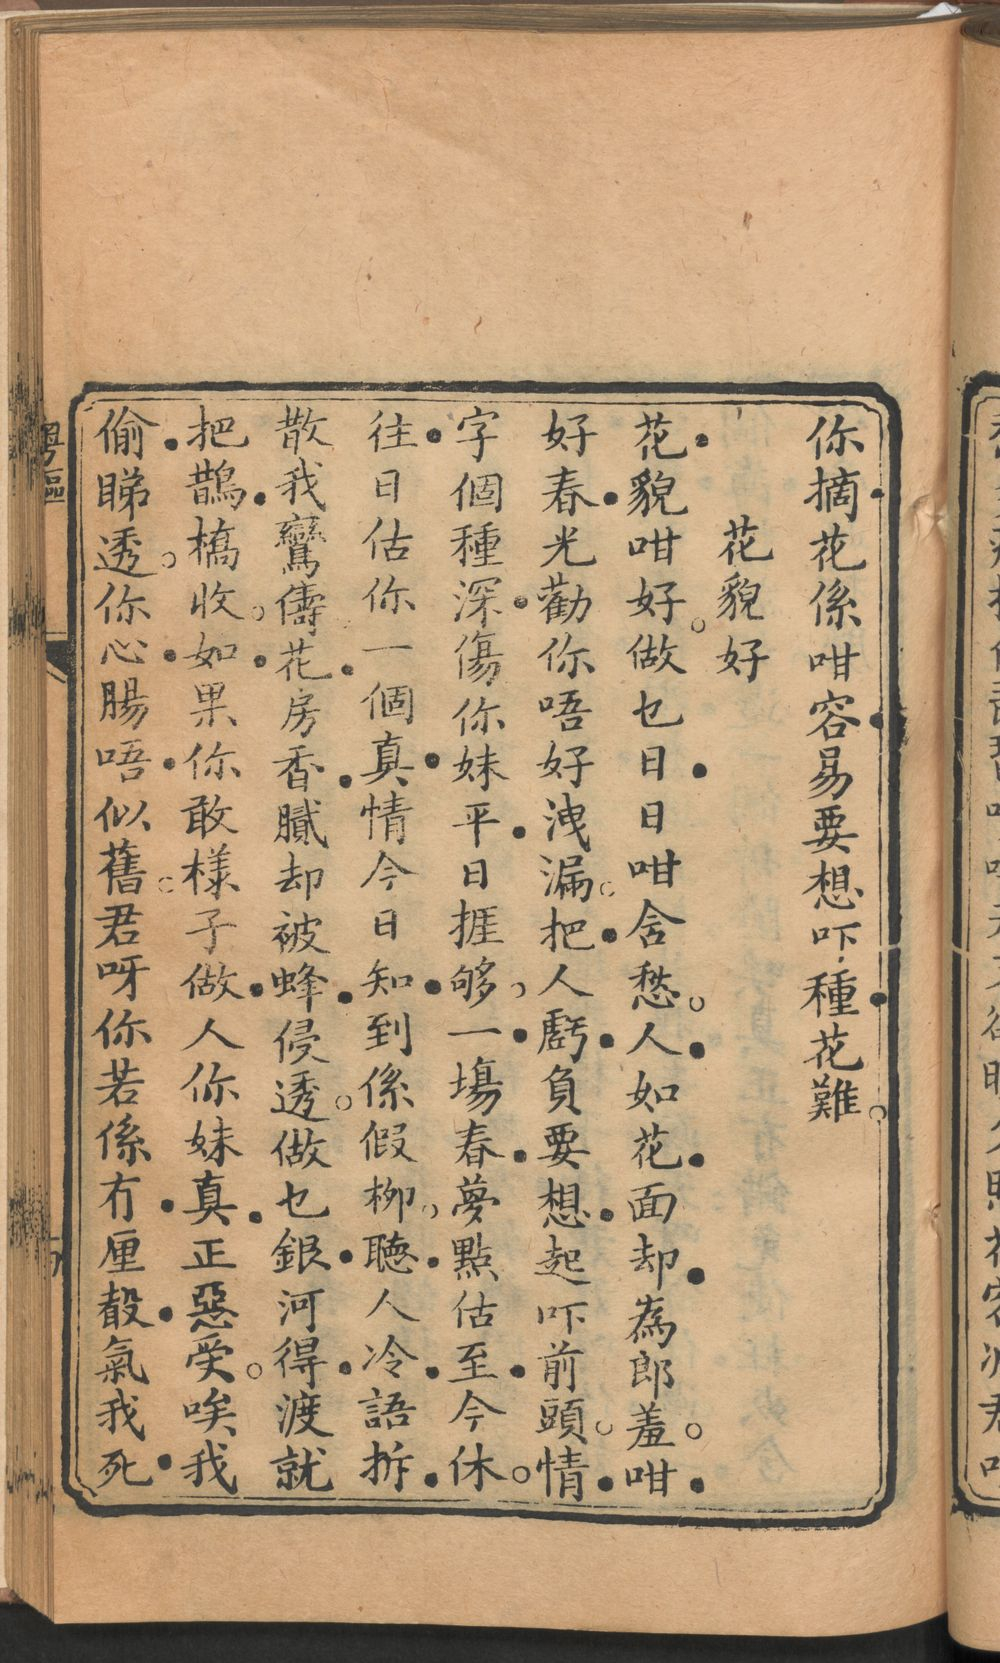 你摘花係咁容易要想吓種花難
花貌好
花貌咁好做乜日日咁含愁人如花面却為郎羞咁
好春光勸你唔好洩漏把人虧負要想起吓前頭情
字個種深傷你妹平日捱够一場春夢點估至今休
往日估你一個真情今日知到係假柳聽人冷語拆
散我鸞儔花房香膩却被蜂侵透做乜銀河得渡就
把鵲橋收如果你敢樣子做人你妹真正惡受唉我
偷睇透你心腸唔似舊君呀你若係冇厘㱿氣我死
粵謳